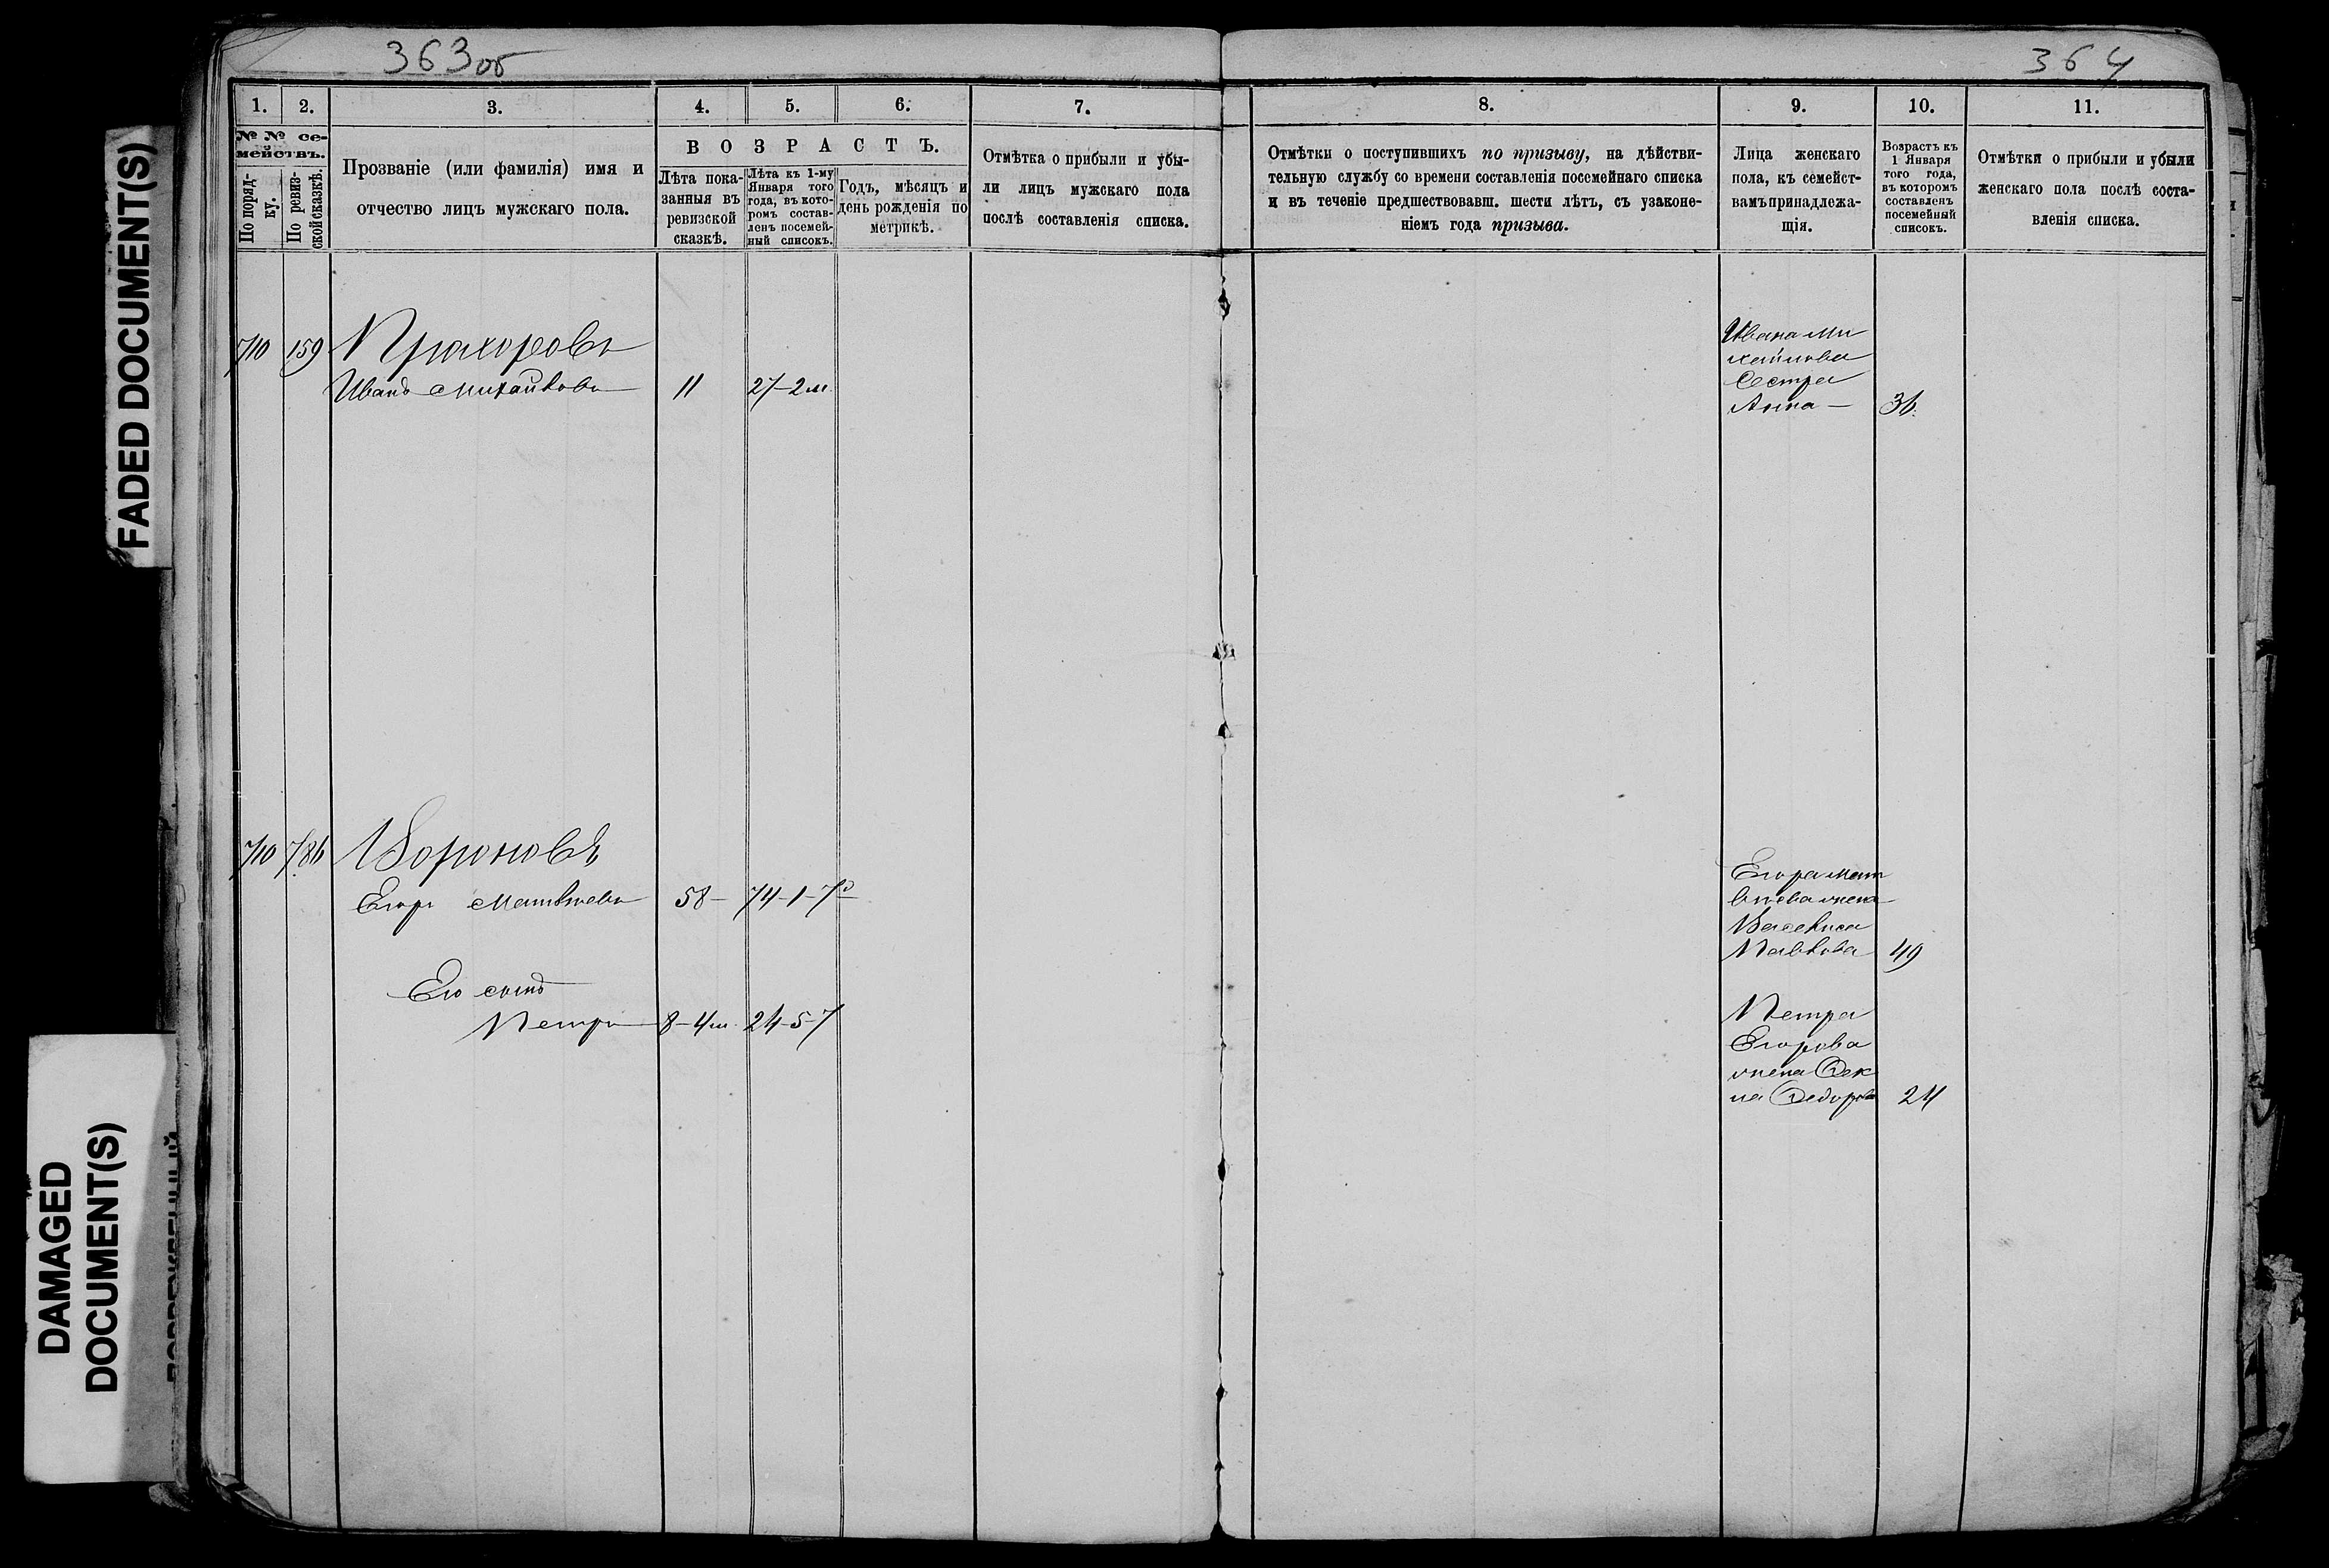 363об
364
1.
2.
3.
4.
5.
6.
7.
8.
9.
10.
11.
№ № се-
мействъ.
По поряд-
ку.
По ревиз-
ской сказкѣ.
Прозваніе (или фамилія) имя и
отчество лицъ мужскаго пола.
ВОЗРАСТЪ.
Лѣта пока-
занныя въ
ревизской
сказкѣ.
Лѣта къ 1-му
Января того
года, въ кото-
ромъ состав-
ленъ посемей-
ный списокъ.
Годъ, мѣсяцъ и
день рожденія по
метрикѣ.
Отмѣтка о прибыли и убы-
ли лицъ мужскаго пола
послѣ составленія списка.
Отмѣтки о поступившихъ по призыву, на дѣйстви-
тельную службу со времени составленія посемейнаго списка
и въ теченіе предшествовавш. шести лѣтъ, съ узаконе-
ніемъ года призыва.
Лица женскаго
пола, къ семейст-
вамъ принадлежа-
щія.
Возрастъ къ
1 Января
того года,
въ которомъ
составленъ
посемейный
списокъ.
Отмѣтки о прибыли и убыли
женскаго пола послѣ соста-
вленія списка.
710 159 Прохоровъ
Иванъ Михайловъ 11 27-2м.
Ивана Ми
хайлова
Сестра
Анна — 36.
710 786 Вороновъ
Егоръ Матвѣевъ 58— 74-1-7
Его сынъ
Петръ 8-4м. 24-5-7
Егора Мат
вѣева жена
Василиса
Павлова 49
Петра
Егорова
жена Фек
ла Федорова 24
FADED DOCUMENT(S)
DAMAGED
DOCUMENT(S)